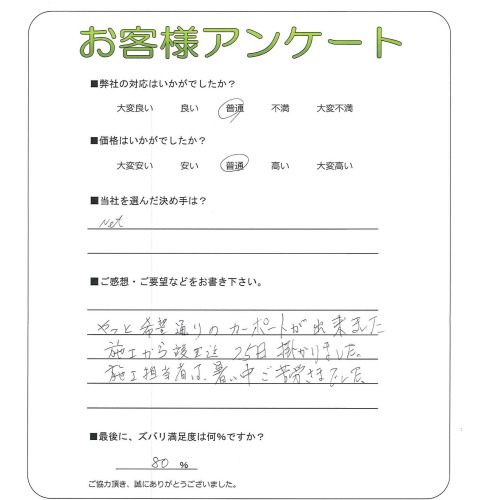 お客様アンケート
■弊社の対応はいかがでしたか？
大変良い 良い 普通 不満 大変不満
■価格はいかがでしたか？
大変安い 安い 普通 高い 大変高い
■当社を選んだ決め手は？
Net
■ご感想・ご要望などをお書き下さい。
やっと希望通りのカーポートが出来ました
施工から竣工迄 25日掛かりました。
施工担当者は、暑い中ご苦労さまでした。
■最後に、ズバリ満足度は何%ですか？
80 %
ご協力頂き、誠にありがとうございました。